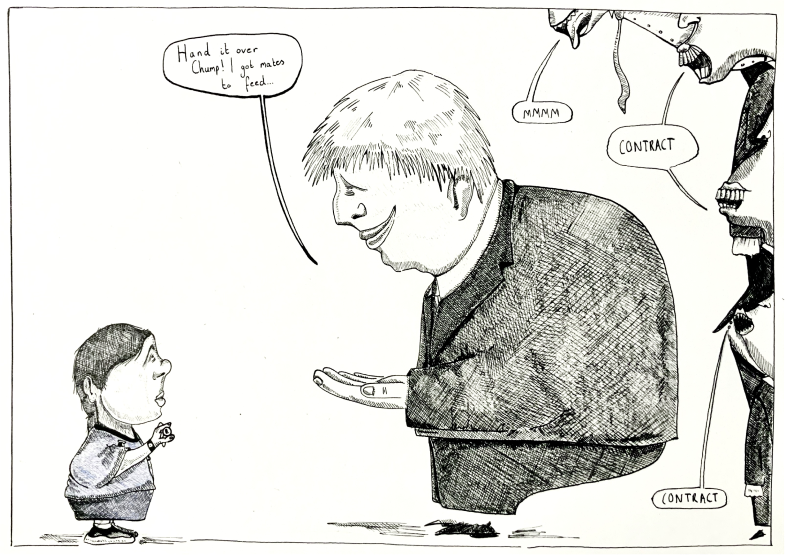 Hand it over
Chump! I got mates
to feed...
MMMM
CONTRACT
CONTRACT